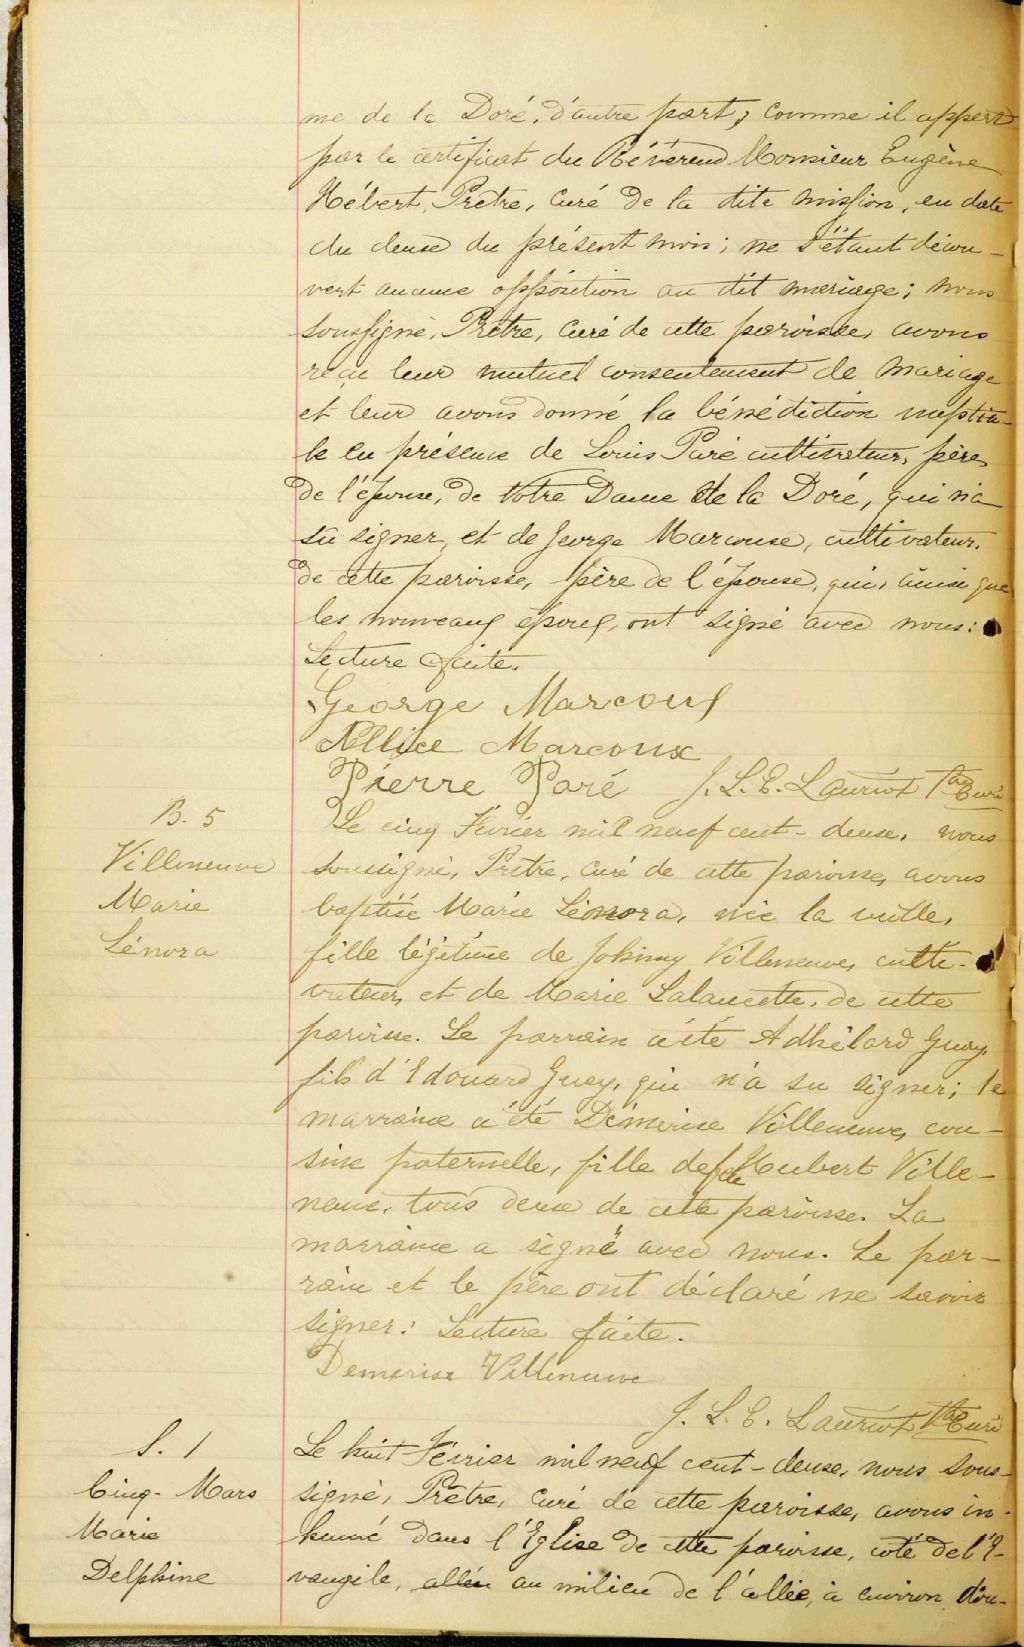 me de la Doré, d'autre part; comme il appert
par le certificat du Révérend Monsieur Eugène
Hébert, Prêtre, curé de la dite mission, en date
du deuse du présent mois; ne s'étant décou-
vert aucune opposition au dit mariage; nous
soussigné, Prêtre, curé de cette paroisse, avons
reçu leur mutuel consentement de mariage
et leur avons donné la bénédiction nuptia-
le en présence de Louis Paré cultivateur, père
de l'épouse, de Notre Dame de la Doré, qui n'a
su signer, et de George Marcouse, cultivateur,
de cette paroisse, père de l'épouse, qui, ainsi que
les nouveaux époux, ont signé avec nous:
Lecture faite.
George Marcoux
Allice Marcoux
Pierre Paré J. L. E. Lauriot Ptre Curé
B. 5
Villeneuve
Marie
Lénora
Le cinq Février mil neuf cent-deuse, nous
soussigné, Prêtre, curé de cette paroisse, avons
baptisé Marie Léonora, née la veille,
fille légitime de Johnny Villeneuve, culti-
vateur, et de Marie Lalancette, de cette
paroisse. Le parrain a été Adhélard Guay,
fils d'Edouard Guay, qui n'a su signer; la
marraine a été Démerise Villeneuve, cou-
sine paternelle, fille de feu Hubert Ville-
neuve, tous deux de cette paroisse. La
marraine a signé avec nous. Le par-
rain et le père ont déclaré ne savoir
signer: Lecture faite.
Demerise Villeneuve
J. L. E. Lauriot Ptre Curé
S. 1
Cinq-Mars
Marie
Delphine
Le huit Février mil neuf cent-deuse, nous sous-
signé, Prêtre, curé de cette paroisse, avons in-
humé dans l'Eglise de cette paroisse, côté de l'E-
vangile, allée au milieu de l'allée, à environ dou-